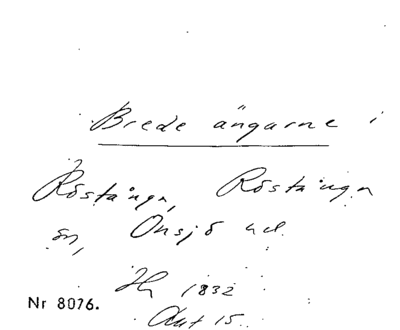 Brede ängarne i
Röstånga, Röstånga
sn, Onsjö hd.
1832
Akt 15.
Nr 8076.